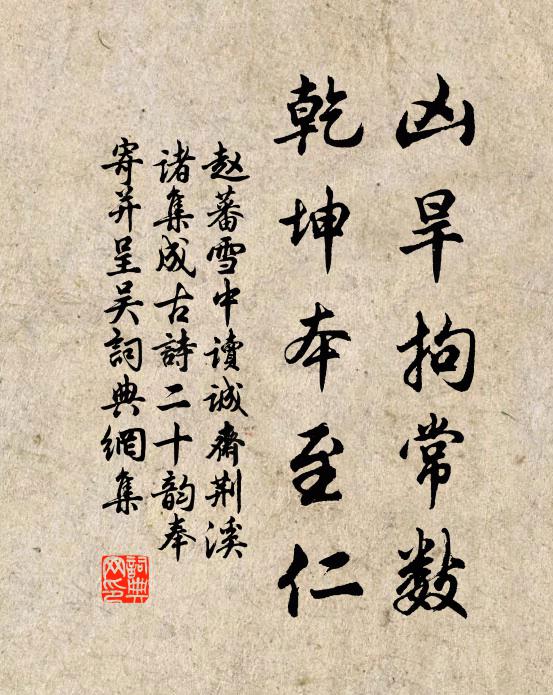 凶旱拘常数
乾坤本至仁
赵蕃雪中讀誠齋荆溪
诸集成古詩二十韵奉
寄并呈吴詞典網集
詞典
网印